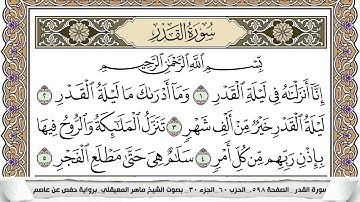 سُورَةُ الْقَدْرِ
بِسْمِ اللَّهِ الرَّحْمَٰنِ الرَّحِيمِ
إِنَّا أَنزَلْنَاهُ فِي لَيْلَةِ الْقَدْرِ ١ وَمَا أَدْرَاكَ مَا لَيْلَةُ الْقَدْرِ ٢
لَيْلَةُ الْقَدْرِ خَيْرٌ مِّنْ أَلْفِ شَهْرٍ ٣ تَنَزَّلُ الْمَلَائِكَةُ وَالرُّوحُ فِيهَا
بِإِذْنِ رَبِّهِم مِّن كُلِّ أَمْرٍ ٤ سَلَامٌ هِيَ حَتَّىٰ مَطْلَعِ الْفَجْرِ ٥
سورة القدر _ الصفحة ٥٩٨_ الحزب ٦٠_ الجزء ٣٠_ بصوت الشيخ ماهر المعيقلي_ برواية حفص عن عاصم